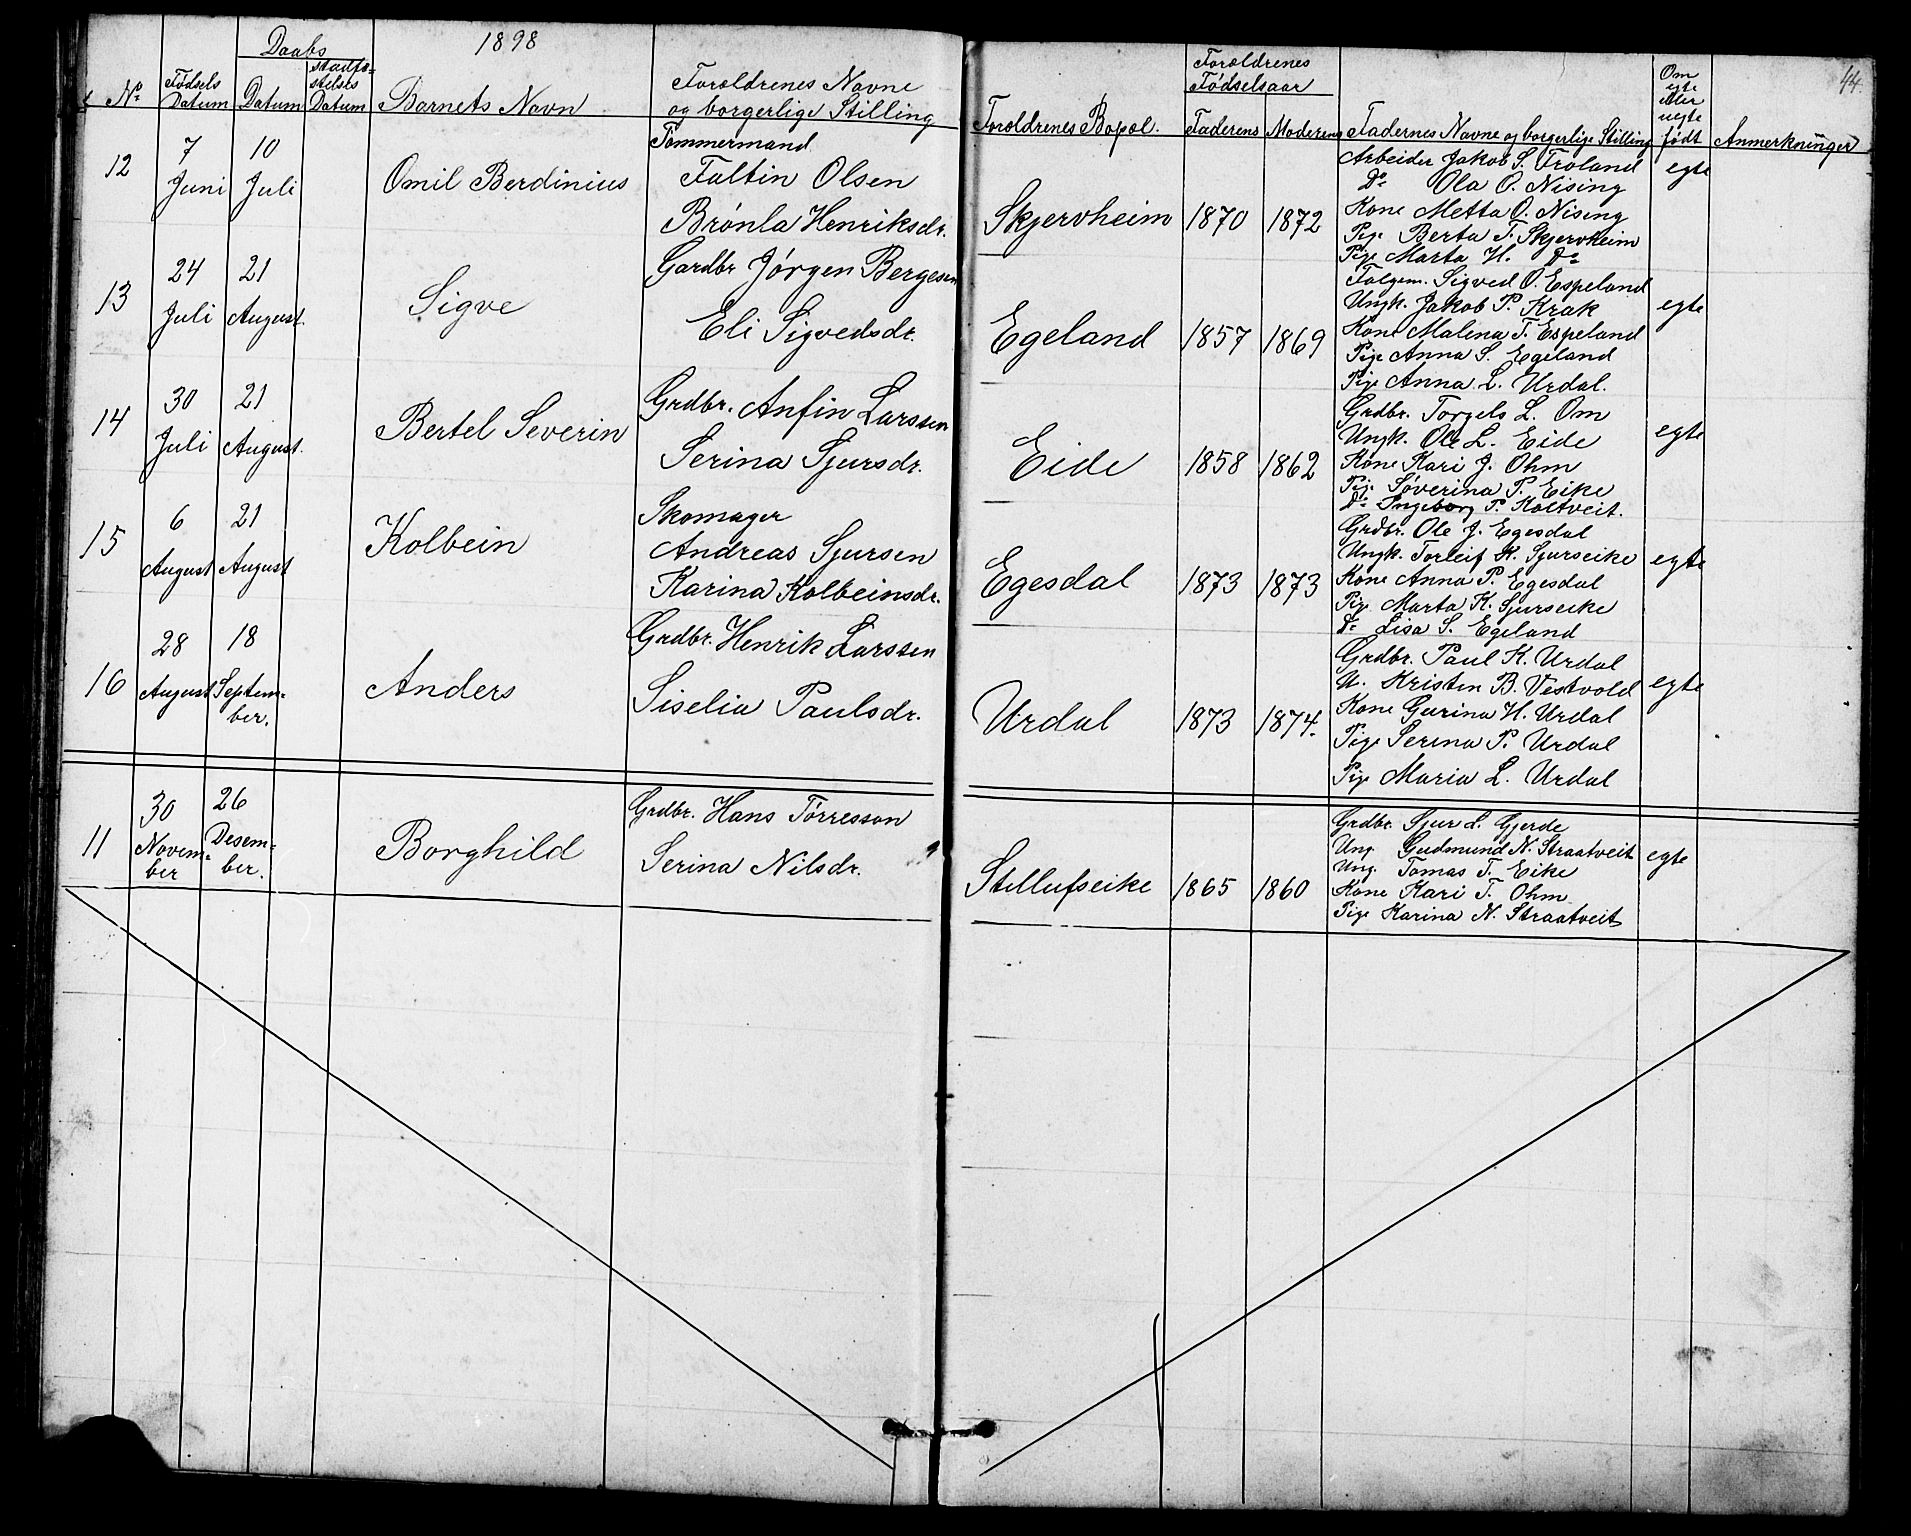 1898
44.
Daabs
No
Fødsels
Datum
Datum
stadfæ-
stelses
Datum
Barnets Navn
Forældrenes Navne
og borgerlige Stilling
Forældrenes Bopæl.
Forældrenes
Fødselsaar
Faderens
Moderens
Fadernes Navne og borgerlige Stilling
Om
egte
eller
uegte
født
Anmerkninger
12
7
Juni
10
Juli
Omil Berdinius
Tømmermand
Faltin Olsen
Brønla Henriksdr.
Skjervheim
1870
1872
Arbeider Jakob S. Froland
Do Ola O. Nising
Kone Metta O. Nising
Pige Berta T. Skjervheim
Pige Marta H. Do
egte
13
24
Juli
21
August.
Sigve
Gardbr Jørgen Bergesen
Eli Sigvedsdr.
Egeland
1857
1869
Følgem. Sigved O. Espeland
Ungk. Jakob P. Krak
Kone Malena T. Espeland
Pige Anna S. Egeland
Pige Anna L. Urdal.
egte
14
30
Juli
21
August.
Bertel Severin
Grdbr. Anfin Larssen
Serina Sjursdr.
Eide
1858
1862
Grdbr. Torgels L. Om
Ungk. Ole L. Eide
Kone Kari J. Ohm
Pige Søverina P. Eike
Do Ingeborg P. Koltveit.
egte
15
6
August
21
August
Kolbein
Skomager
Andreas Sjursen
Karina Kolbeinsdr.
Egesdal
1873
1873
Grdbr. Ole J. Egesdal
Ungk. Torleif K. Sjurseike
Kone Anna P. Egesdal
Pige Marta K. Sjurseike
Do Lisa S. Egeland
egte
16
28
August
18
Septem-
ber.
Anders
Grdbr. Henrik Larssen
Siselia Paulsdr.
Urdal
1873
1874.
Grdbr. Paul K. Urdal
U. Kristen B. Vestvold
Kone Gurina H. Urdal
Pige Serina P. Urdal
Pige Maria L. Urdal
egte
11
30
Novem-
ber
26
Desem-
ber.
Borghild
Grdbr. Hans Tørresson
Serina Nilsdr.
Stellufseike
1865
1860
Grdbr. Sjur L. Gjerde
Ung. Gudmund N. Straatveit
Ung. Tomas T. Eike
Kone Kari T. Ohm
Pige Karina N. Straatveit
egte